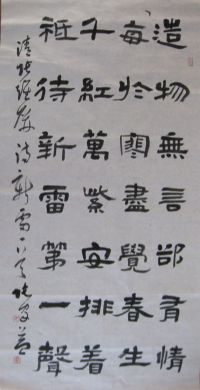 造物無言卻有情
每於寒盡覺春生
千紅萬紫安排着
祗待新雷第一聲
清張維屏詩新雷